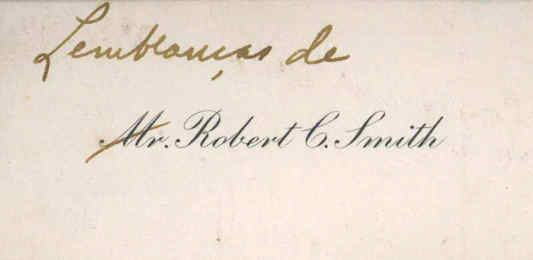 Lembranças de
Mr. Robert C. Smith